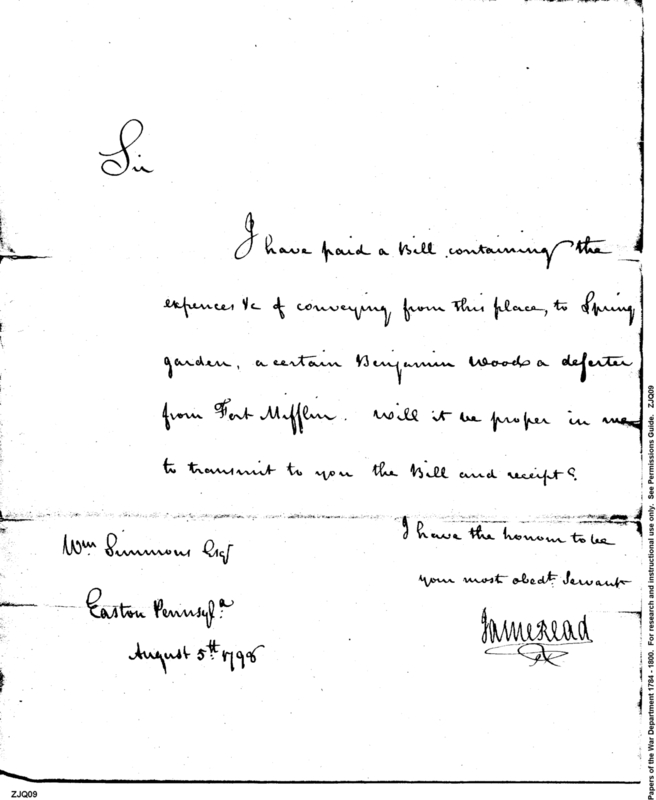 Sir
I have paid a Bill containing the
expences &c of conveying from this place, to Spring
garden, a certain Benjamin Woods a deserter
from Fort Mifflin. Will it be proper in me
to transmit to you the Bill and receipt?
I have the honour to be
your most obedt. Servant
James Read
Wm Simmons Esqr
Easton Pennsyla.
August 5th 1798
Papers of the War Department 1784 - 1800. For research and instructional use only. See Permissions Guide. ZJQ09
ZJQ09